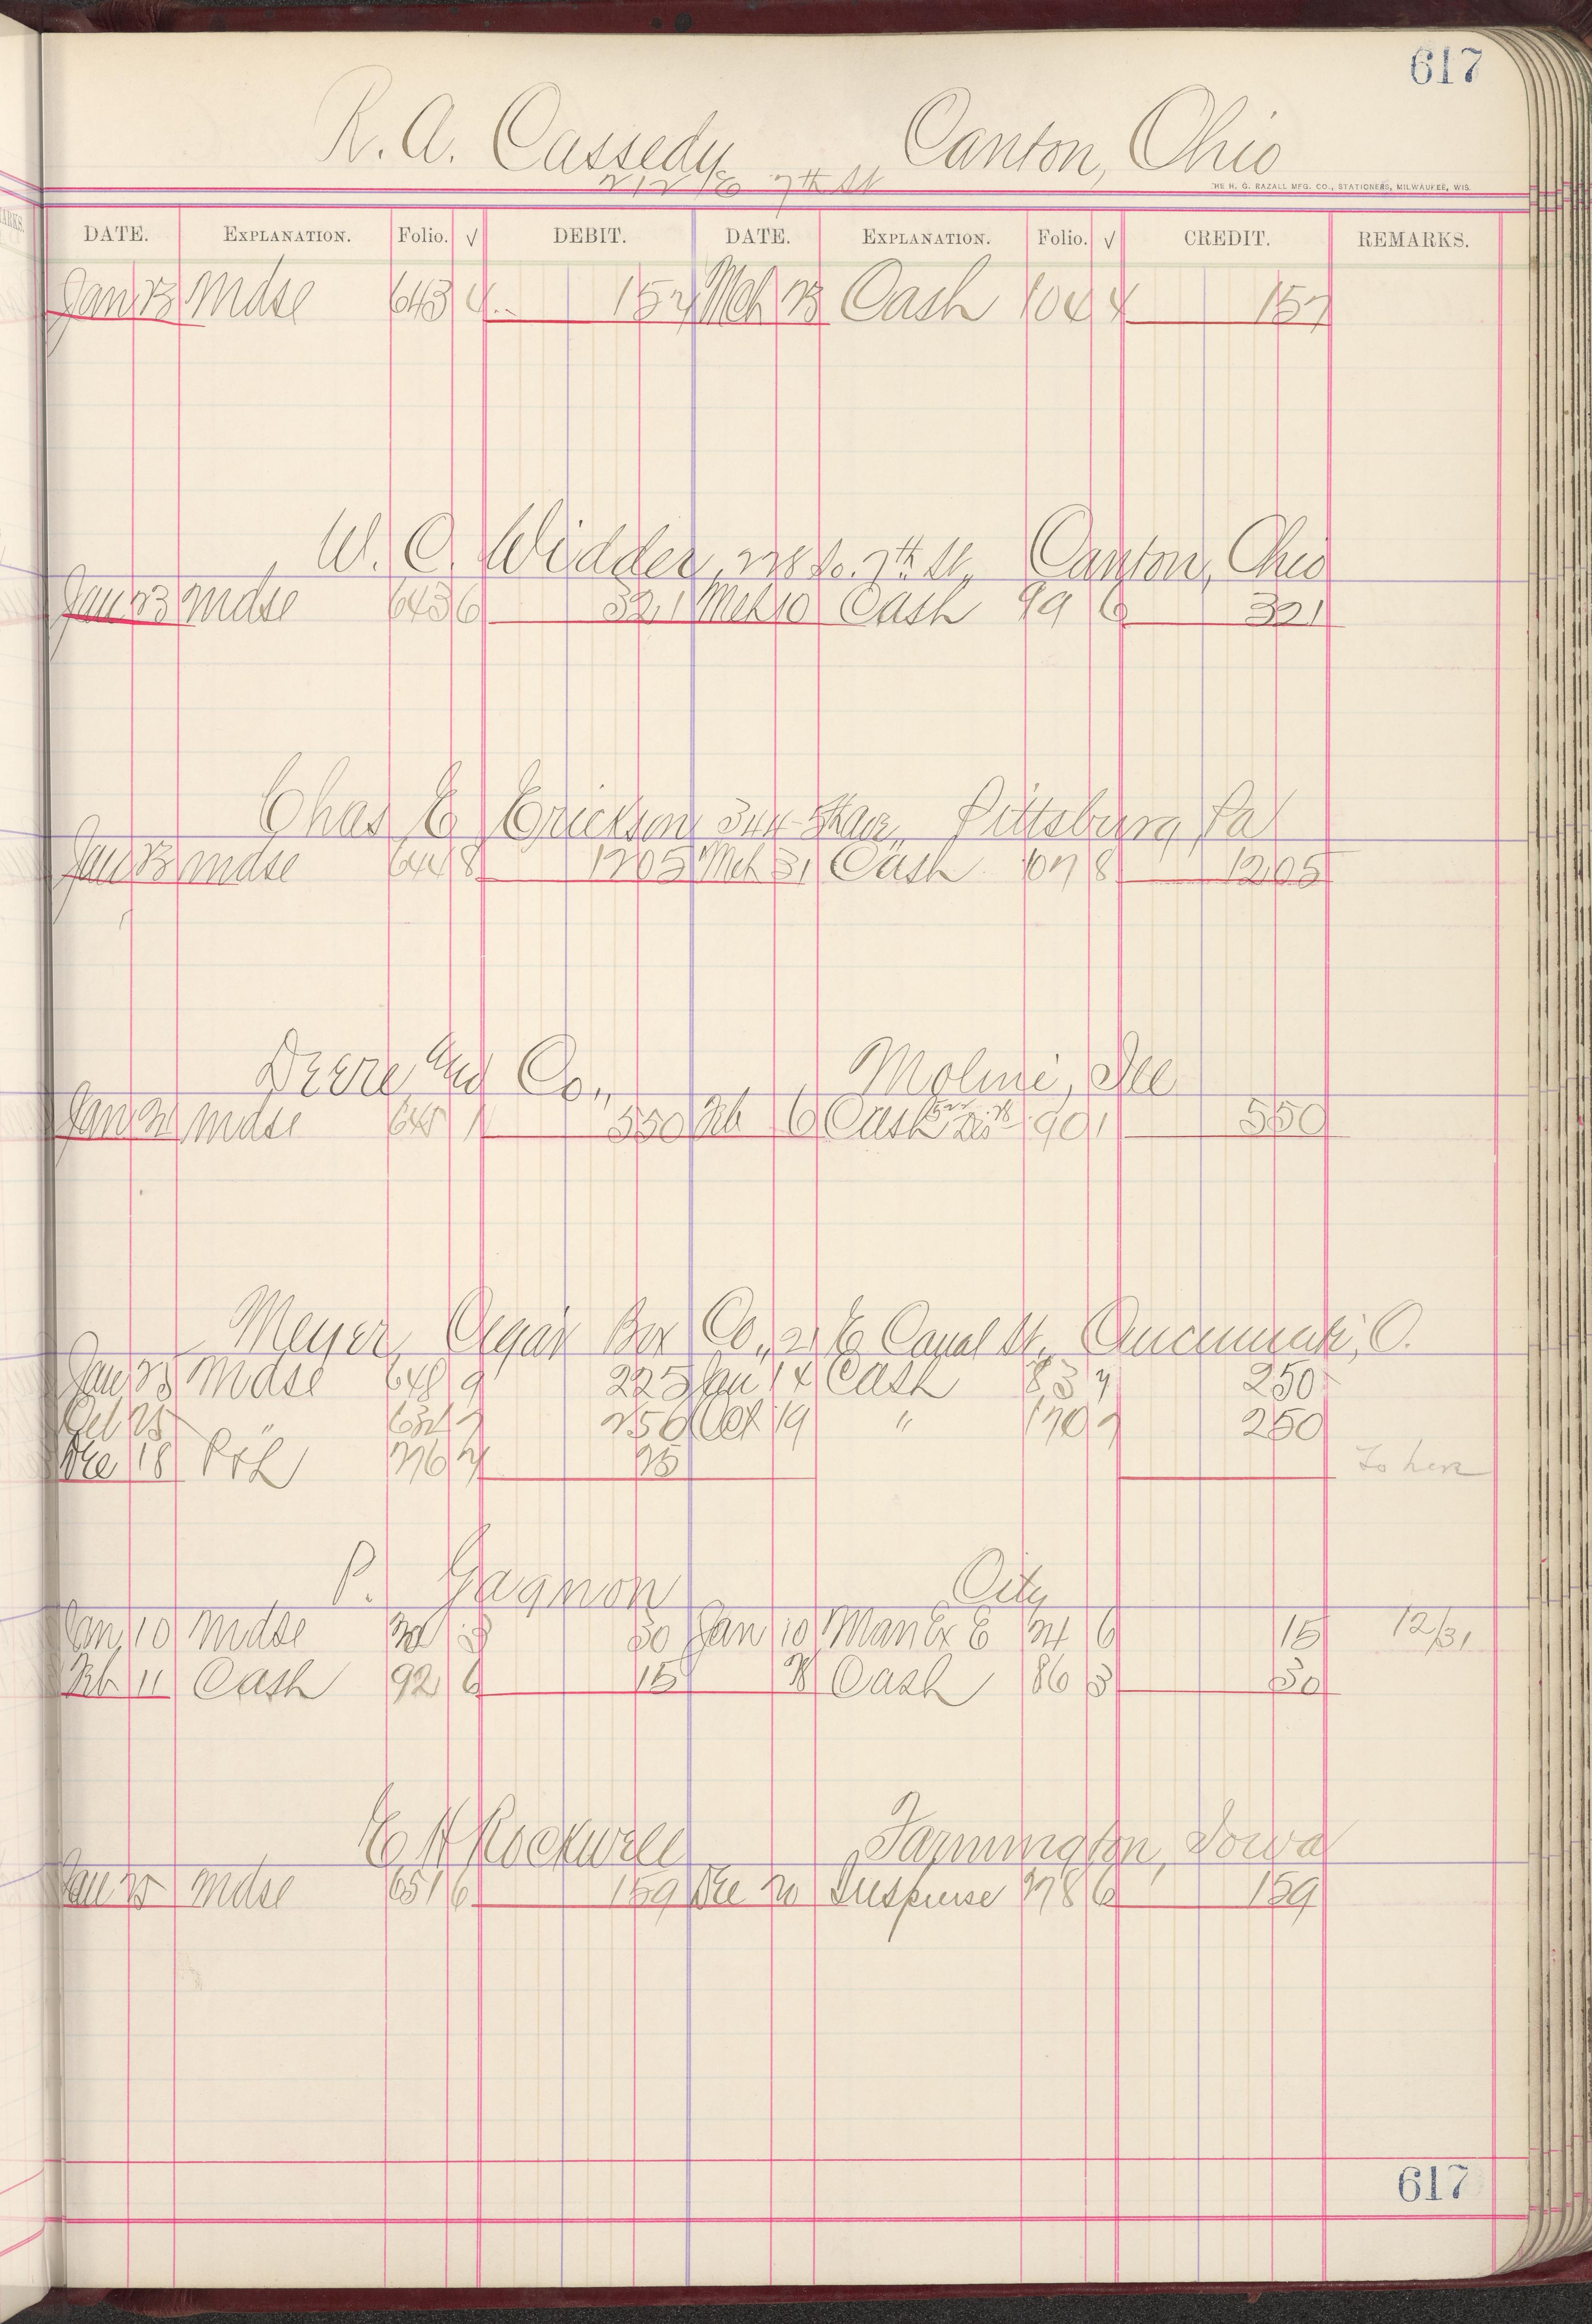 617
R. A. Cassedy Canton, Ohio
212 E 7th St
THE H. G. RAZALL MFG. CO., STATIONERS, MILWAUKEE, WIS.
DATE. EXPLANATION. Folio. √ DEBIT. DATE. EXPLANATION. Folio. √ CREDIT. REMARKS.
Jan 23 Mdse 643 4 157 Mch 23 Cash 104 4 157
W. C. Widder, 228 So. 7th St., Canton, Ohio
Jan 23 Mdse 643 6 321 Mch 10 Cash 99 6 321
Chas E Erickson 344 5th Ave., Pittsburg, Pa
Jan 23 Mdse 644 8 1205 Mch 31 Cash 107 8 1205
Deere and Co., Moline, Ill
Jan 21 Mdse 645 1 550 Feb 6 Cash Dis 90 1 550
Meyer Cigar Box Co., 21 E Canal St., Cincinnati, O.
Jan 23 Mdse 648 9 225 Jan 14 Cash 83 9 250
Oct 25 " 634 7 250 Oct 19 " 170 7 250
Dec 18 P&L 276 7 25 To here
P. Gagnon City
Jan 10 Mdse 3 30 Jan 10 Man Ex E 24 6 15 12/31
Feb 11 Cash 92 6 15 28 Cash 86 3 30
E H Rockwell Farmington, Iowa
Jan 25 Mdse 651 6 159 Dec 20 Suspense 278 6 159
617